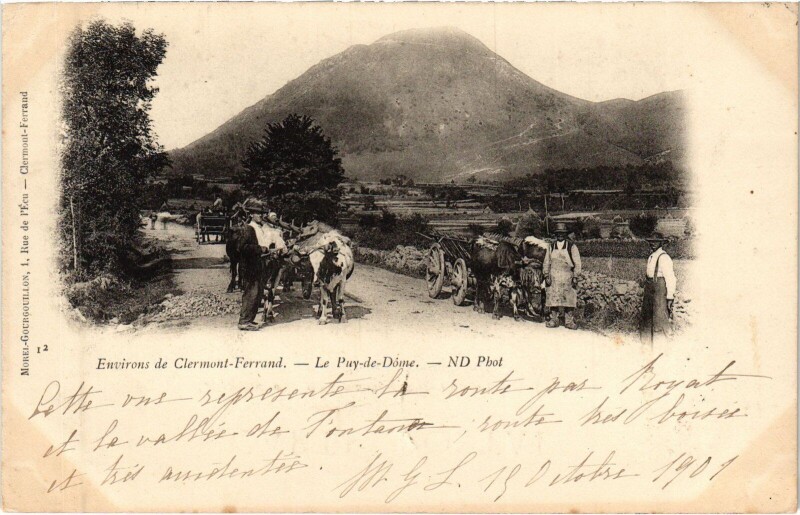 MOREL-GOURGOUILLON, 1, Rue de l'Écu — Clermont-Ferrand
12
Environs de Clermont-Ferrand. — Le Puy-de-Dôme. — ND Phot
Cette vue représente la route par Royat
et la vallée de Fontanas, route très boisée
et très accidentée. M. G. L. 15 Octobre 1901